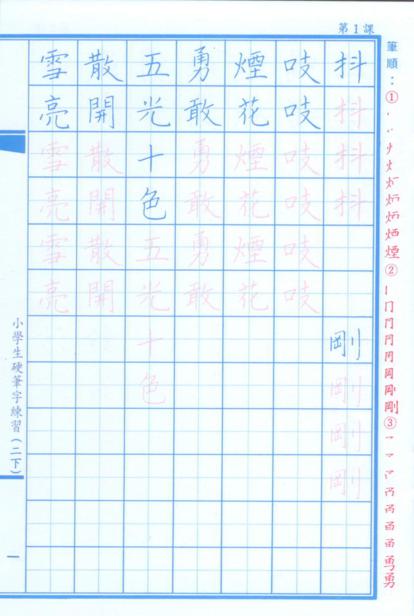 第1課
筆順：①丶丷火炉炉炳炳煙煙②丨冂冂冂冂冈冈剛剛③乛乛マ⺈丙丙甬甬勇勇
抖抖抖抖剛剛剛剛
吱吱吱吱吱吱
煙花煙花煙花
勇敢勇敢勇敢
五光十色五光十色
散開散開散開
雪亮雪亮雪亮
小學生硬筆字練習（二下）
一